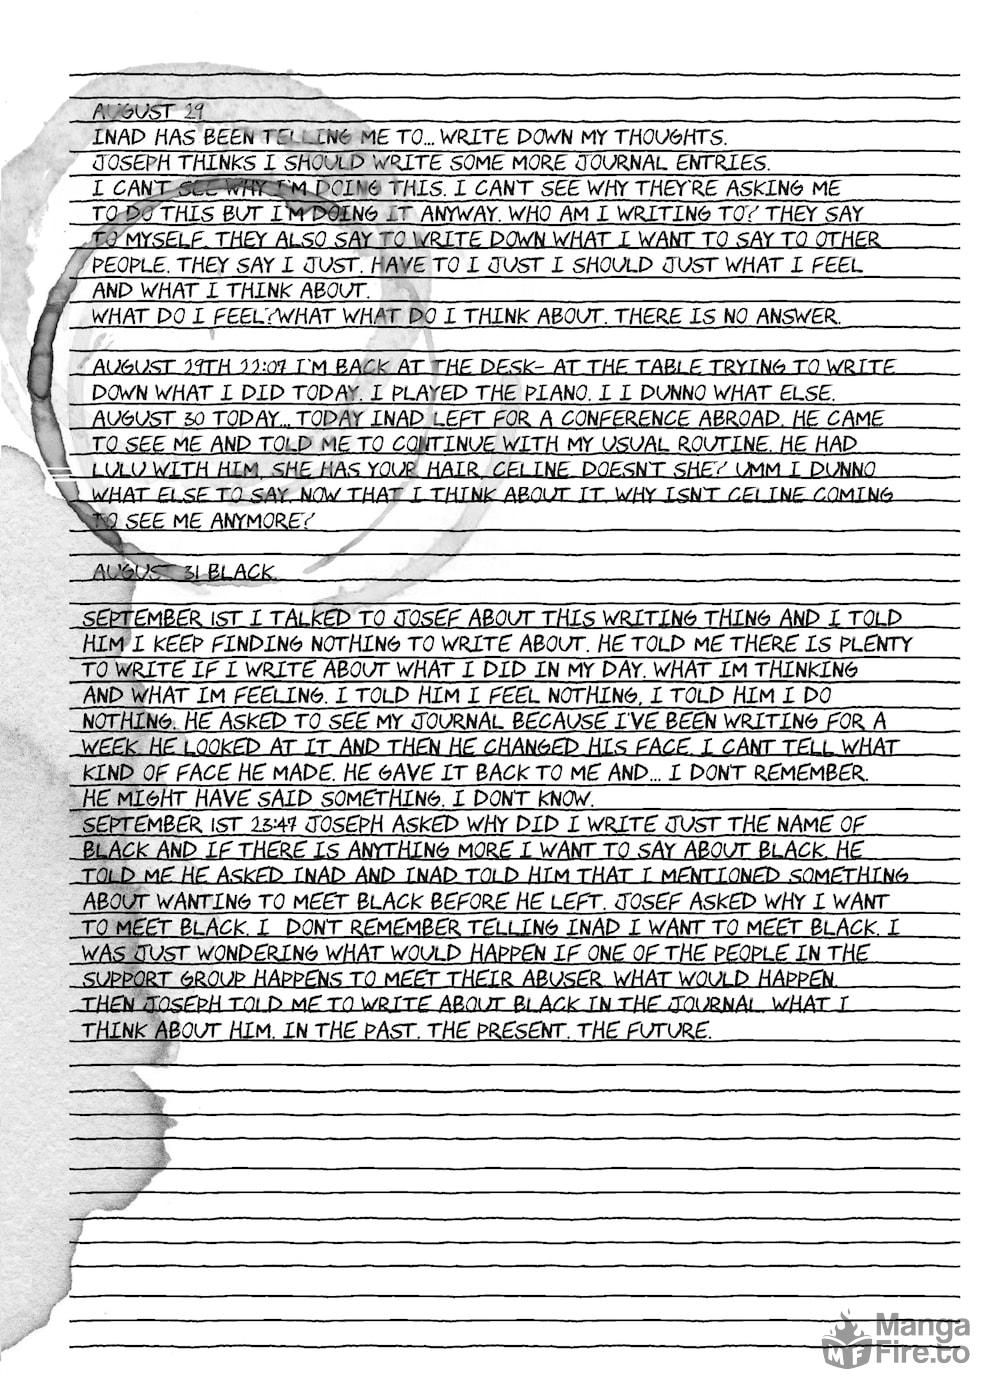 AUGUST 29
INAD HAS BEEN TELLING ME TO... WRITE DOWN MY THOUGHTS.
JOSEPH THINKS I SHOULD WRITE SOME MORE JOURNAL ENTRIES.
I CAN'T SEE WHY I'M DOING THIS. I CAN'T SEE WHY THEY'RE ASKING ME
TO DO THIS BUT I'M DOING IT ANYWAY. WHO AM I WRITING TO? THEY SAY
TO MYSELF. THEY ALSO SAY TO WRITE DOWN WHAT I WANT TO SAY TO OTHER
PEOPLE. THEY SAY I JUST. HAVE TO I JUST I SHOULD JUST WHAT I FEEL
AND WHAT I THINK ABOUT.
WHAT DO I FEEL? WHAT WHAT DO I THINK ABOUT. THERE IS NO ANSWER.
AUGUST 29TH 22:07 I'M BACK AT THE DESK- AT THE TABLE TRYING TO WRITE
DOWN WHAT I DID TODAY. I PLAYED THE PIANO. I I DUNNO WHAT ELSE.
AUGUST 30 TODAY... TODAY INAD LEFT FOR A CONFERENCE ABROAD. HE CAME
TO SEE ME AND TOLD ME TO CONTINUE WITH MY USUAL ROUTINE. HE HAD
LULU WITH HIM. SHE HAS YOUR HAIR, CELINE. DOESN'T SHE? UMM I DUNNO
WHAT ELSE TO SAY. NOW THAT I THINK ABOUT IT. WHY ISN'T CELINE COMING
TO SEE ME ANYMORE?
AUGUST 31 BLACK.
SEPTEMBER 1ST I TALKED TO JOSEF ABOUT THIS WRITING THING AND I TOLD
HIM I KEEP FINDING NOTHING TO WRITE ABOUT. HE TOLD ME THERE IS PLENTY
TO WRITE IF I WRITE ABOUT WHAT I DID IN MY DAY. WHAT IM THINKING
AND WHAT IM FEELING. I TOLD HIM I FEEL NOTHING, I TOLD HIM I DO
NOTHING. HE ASKED TO SEE MY JOURNAL BECAUSE I'VE BEEN WRITING FOR A
WEEK. HE LOOKED AT IT AND THEN HE CHANGED HIS FACE. I CANT TELL WHAT
KIND OF FACE HE MADE. HE GAVE IT BACK TO ME AND... I DON'T REMEMBER.
HE MIGHT HAVE SAID SOMETHING. I DON'T KNOW.
SEPTEMBER 1ST 23:47 JOSEPH ASKED WHY DID I WRITE JUST THE NAME OF
BLACK AND IF THERE IS ANYTHING MORE I WANT TO SAY ABOUT BLACK. HE
TOLD ME HE ASKED INAD AND INAD TOLD HIM THAT I MENTIONED SOMETHING
ABOUT WANTING TO MEET BLACK BEFORE HE LEFT. JOSEF ASKED WHY I WANT
TO MEET BLACK. I DON'T REMEMBER TELLING INAD I WANT TO MEET BLACK. I
WAS JUST WONDERING WHAT WOULD HAPPEN IF ONE OF THE PEOPLE IN THE
SUPPORT GROUP HAPPENS TO MEET THEIR ABUSER. WHAT WOULD HAPPEN.
THEN JOSEPH TOLD ME TO WRITE ABOUT BLACK IN THE JOURNAL. WHAT I
THINK ABOUT HIM. IN THE PAST. THE PRESENT. THE FUTURE.
MF
Manga
Fire.to